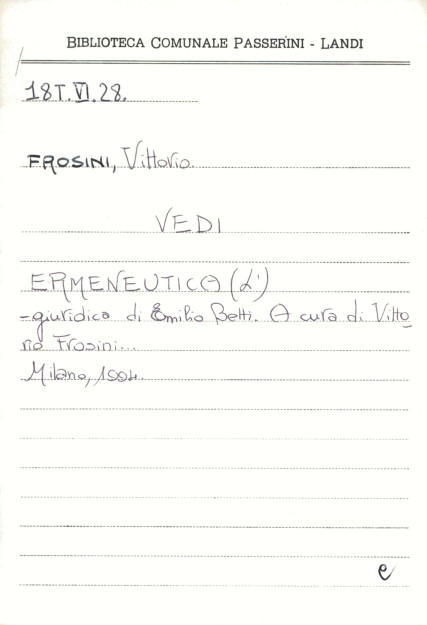 BIBLIOTECA COMUNALE PASSERINI - LANDI
18T.VI.28.
FROSINI, Vittorio.
VEDI
ERMENEUTICA (L')
-giuridica di Emilio Betti. A cura di Vitto
rio Frosini...
Milano, 1994.
e